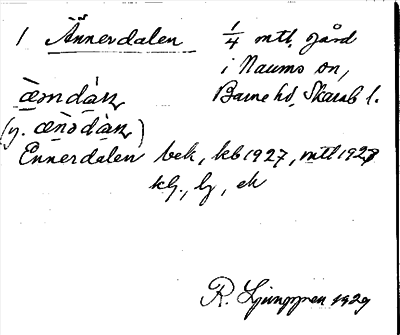 1 Ännerdalen 1/4 mtl. gård
i Naums sn,
æ̀ndàɳ Barne hd, Skarab l.
(y. æ̀nədàɳ)
Ennerdalen bek, kb 1927, mtl 1928
kg., lg, ek
R. Ljunggren 1929